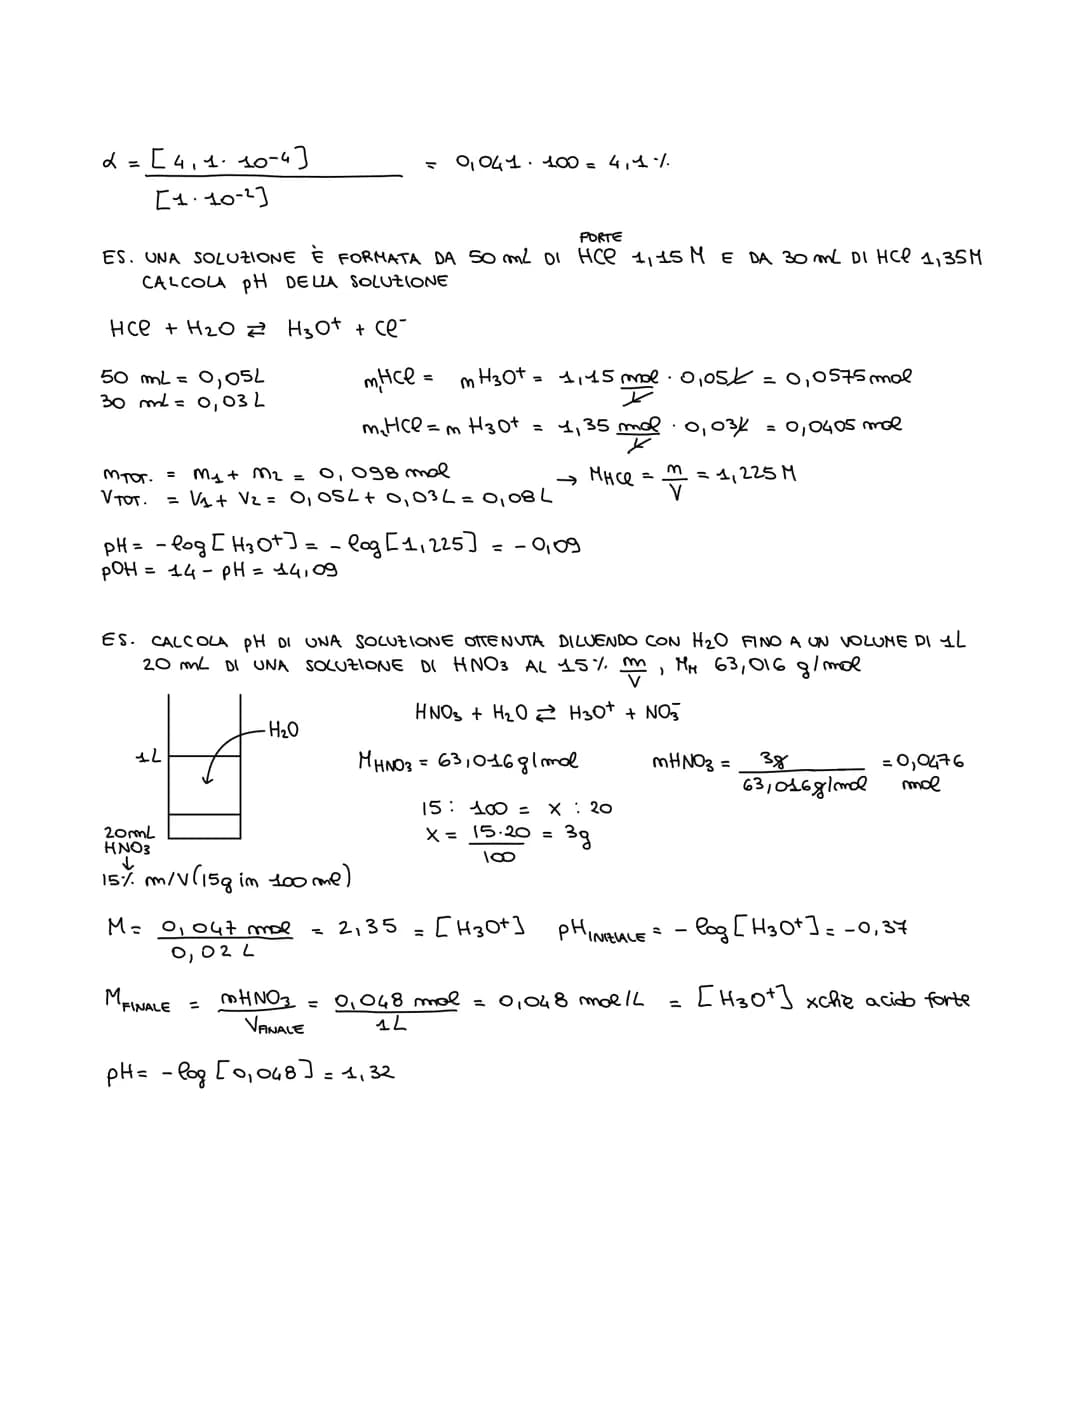 α = [4,1 · 10-4] / [1 · 10-2] = 0,041 · 100 = 4,1 %
FORTE
ES. UNA SOLUZIONE È FORMATA DA 50 mL DI HCl 1,15 M E DA 30 mL DI HCl 1,35M
CALCOLA pH DELLA SOLUZIONE
HCl + H2O ⇄ H3O+ + Cl-
50 mL = 0,05L
30 mL = 0,03 L
n1HCl = n H3O+ = 1,15 mol/L · 0,05L = 0,0575 mol
n2HCl = n H3O+ = 1,35 mol/L · 0,03L = 0,0405 mol
nTOT. = n1 + n2 = 0,098 mol
VTOT. = V1 + V2 = 0,05L + 0,03L = 0,08L
→ MHCl = n/V = 1,225 M
pH = - log [H3O+] = - log [1,225] = - 0,09
pOH = 14 - pH = 14,09
ES. CALCOLA pH DI UNA SOLUZIONE OTTENUTA DILUENDO CON H2O FINO A UN VOLUME DI 1L
20 mL DI UNA SOLUZIONE DI HNO3 AL 15% m/V, MM 63,016 g/mol
HNO3 + H2O ⇄ H3O+ + NO3-
H2O
1L
MHNO3 = 63,016 g/mol
nHNO3 = 3g / 63,016 g/mol = 0,0476 mol
15 : 100 = x : 20
x = 15·20 / 100 = 3g
20mL
HNO3
↓
15% m/V (15g in 100 ml)
M = 0,047 mol / 0,02 L = 2,35 = [H3O+] pHINIZIALE = - log [H3O+] = -0,37
MFINALE = nHNO3 / VFINALE = 0,048 mol / 1L = 0,048 mol/L = [H3O+] xchè acido forte
pH = - log [0,048] = 1,32